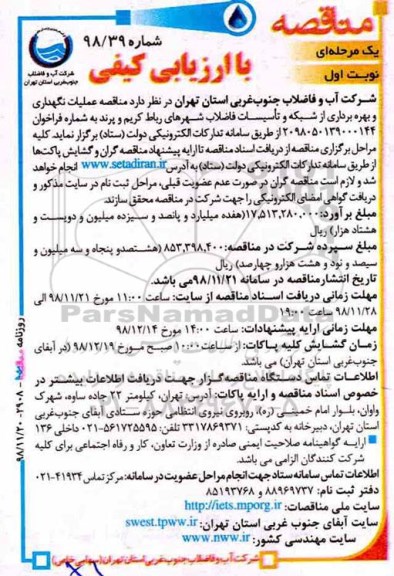 مناقصه
یک مرحله‌ای
نوبت اول
شماره ۹۸/۳۹
با ارزیابی کیفی
شرکت آب و فاضلاب
جنوب‌غربی استان تهران
شرکت آب و فاضلاب جنوب‌غربی استان تهران در نظر دارد مناقصه عملیات نگهداری
و بهره برداری از شبکه و تأسیسات فاضلاب شهرهای رباط کریم و پرند به شماره فراخوان
۲۰۹۸۰۵۰۱۳۹۰۰۰۱۴۴ از طریق سامانه تدارکات الکترونیکی دولت (ستاد) برگزار نماید. کلیه
مراحل برگزاری مناقصه از دریافت اسناد مناقصه تا ارایه پیشنهاد مناقصه گران و گشایش پاکت‌ها
از طریق سامانه تدارکات الکترونیکی دولت (ستاد) به آدرس www.setadiran.ir انجام خواهد
شد و لازم است مناقصه گران در صورت عدم عضویت قبلی، مراحل ثبت نام در سایت مذکور و
دریافت گواهی امضای الکترونیکی را جهت شرکت در مناقصه محقق سازند.
مبلغ برآورد: ۱۷,۵۱۳,۲۸۰,۰۰۰(هفده میلیارد و پانصد و سیزده میلیون و دویست و
هشتاد هزار) ریال
مبلغ سپرده شرکت در مناقصه: ۸۵۳,۳۹۸,۴۰۰ (هشتصدو پنجاه و سه میلیون و
سیصد و نود و هشت هزارو چهارصد) ریال
تاریخ انتشار مناقصه در سامانه ۹۸/۱۱/۲۱ می‌باشد.
مهلت زمانی دریافت اسناد مناقصه از سایت: ساعت ۱۱:۰۰ مورخ ۹۸/۱۱/۲۱ الی
۹۸/۱۱/۲۸ ساعت ۱۹:۰۰
مهلت زمانی ارایه پیشنهادات: ساعت ۱۴:۰۰ مورخ ۹۸/۱۲/۱۴
زمان گشایش کلیه پاکات: از ساعت ۱۰:۰۰ صبح مورخ ۹۸/۱۲/۱۹ (در آبفای
جنوب‌غربی استان تهران) می باشد.
اطلاعات تماس دستگاه مناقصه‌گزار جهت دریافت اطلاعات بیشتر در
خصوص اسناد مناقصه و ارایه پاکات: آدرس تهران، کیلومتر ۲۲ جاده ساوه، شهرک
واوان، بلوار امام خمینی (ره)، روبروی نیروی انتظامی، حوزه ستادی آبفای جنوب‌غربی
استان تهران، دبیرخانه به کدپستی: ۳۳۱۷۸۶۹۳۷۱ تلفن: ۵۶۱۷۲۵۵۹۵-۰۲۱ داخلی ۱۳۶
* ارایه گواهینامه صلاحیت ایمنی صادره از وزارت تعاون، کار و رفاه اجتماعی برای کلیه
شرکت کنندگان الزامی می باشد.
اطلاعات تماس سامانه ستاد جهت انجام مراحل عضویت در سامانه: مرکز تماس ۴۱۹۳۴-۰۲۱
دفتر ثبت نام: ۸۸۹۶۹۷۳۷ و ۸۵۱۹۳۷۶۸
سایت ملی مناقصات: http://iets.mporg.ir
سایت آبفای جنوب غربی استان تهران: swest.tpww.ir
سایت مهندسی کشور: www.nww.ir
شرکت آب و فاضلاب جنوب غربی استان تهران (سهامی خاص)
ParsNamadData